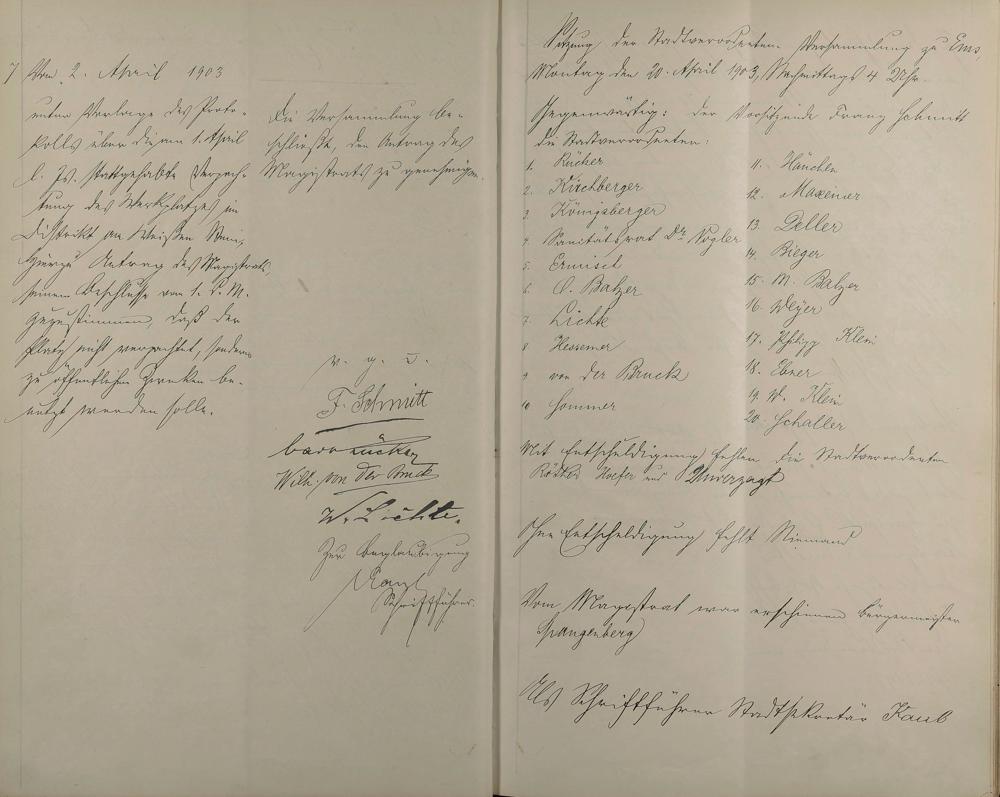 7 Vom 2. April 1903
unter Vorlage des Proto-
kolls über die am 1. April
l. Js. stattgehabte Verpach-
tung des Werkplatzes im
Distrikt am Weißen Stein,
Hierzu Antrag des Magistrats,
seinem Beschlusse vom 1. l. M.
zuzustimmen, daß der
Platz nicht verpachtet, sondern
zu öffentlichen Zwecken be-
nutzt werden solle.
Die Versammlung be-
schließt, den Antrag des
Magistrats zu genehmigen.
v. g. u.
F. Schmitt
Wilh. von der Bruck
W. Lichte.
Zur Beglaubigung
Kaul
Schriftführer.
Sitzung der Stadtverordneten-Versammlung zu Ems,
Montag den 20. April 1903, Nachmittags 4 Uhr.
Gegenwärtig: der Vorsitzende Franz Schmitt
die Stadtverordneten:
1. Rücker
2. Kirchberger
3. Königsberger
4. Sanitätsrat Dr. Vogler
5. Ermisch
6. O. Balzer
7. Lichte
8 Hessemer
9 von der Bruck
10 Sommer
11. Häuchen
12. Maxeiner
13. Deller
14. Bieger
15. M. Balzer
16. Weyer
17. Philipp Klein
18. Ebner
19. W. Klein
20. Schaller
Mit Entschuldigung fehlen die Stadtverordneten
Röther Hoefer und Unverzagt
Ohne Entschuldigung fehlt Niemand
Vom Magistrat war erschienen Bürgermeister
Spangenberg
Als Schriftführer Stadtsekretär Kaul